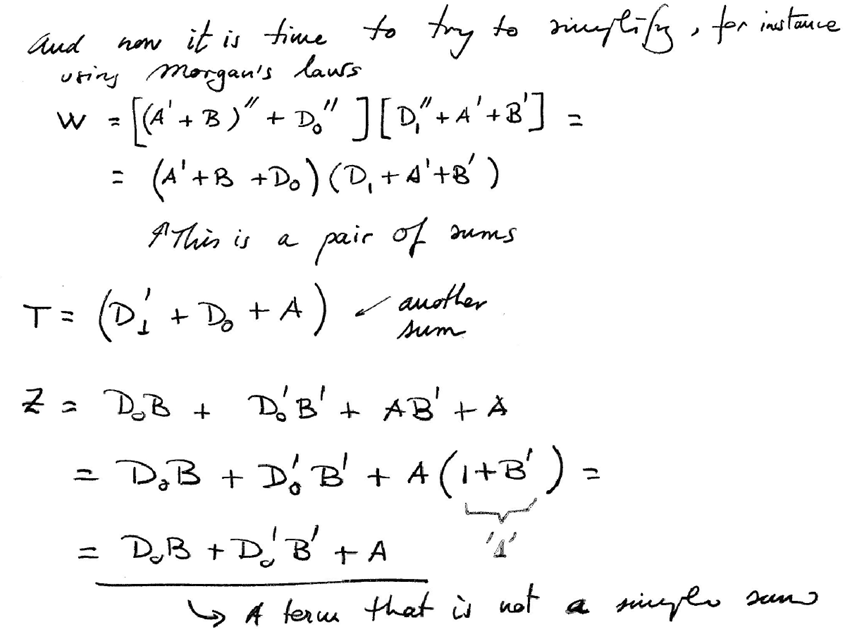 And now it is time to try to simplify, for instance
using Morgan's laws
W = [(A' + B)'' + D₀''][D₁'' + A' + B'] =
= (A' + B + D₀)(D₁ + A' + B')
↑ This is a pair of sums
T = (D₁' + D₀ + A) ↙ another
sum
Z = D₀B + D₀'B' + AB' + A
= D₀B + D₀'B' + A(1+B') =
'1'
= D₀B + D₀'B' + A
↳ A term that is not a simple sum